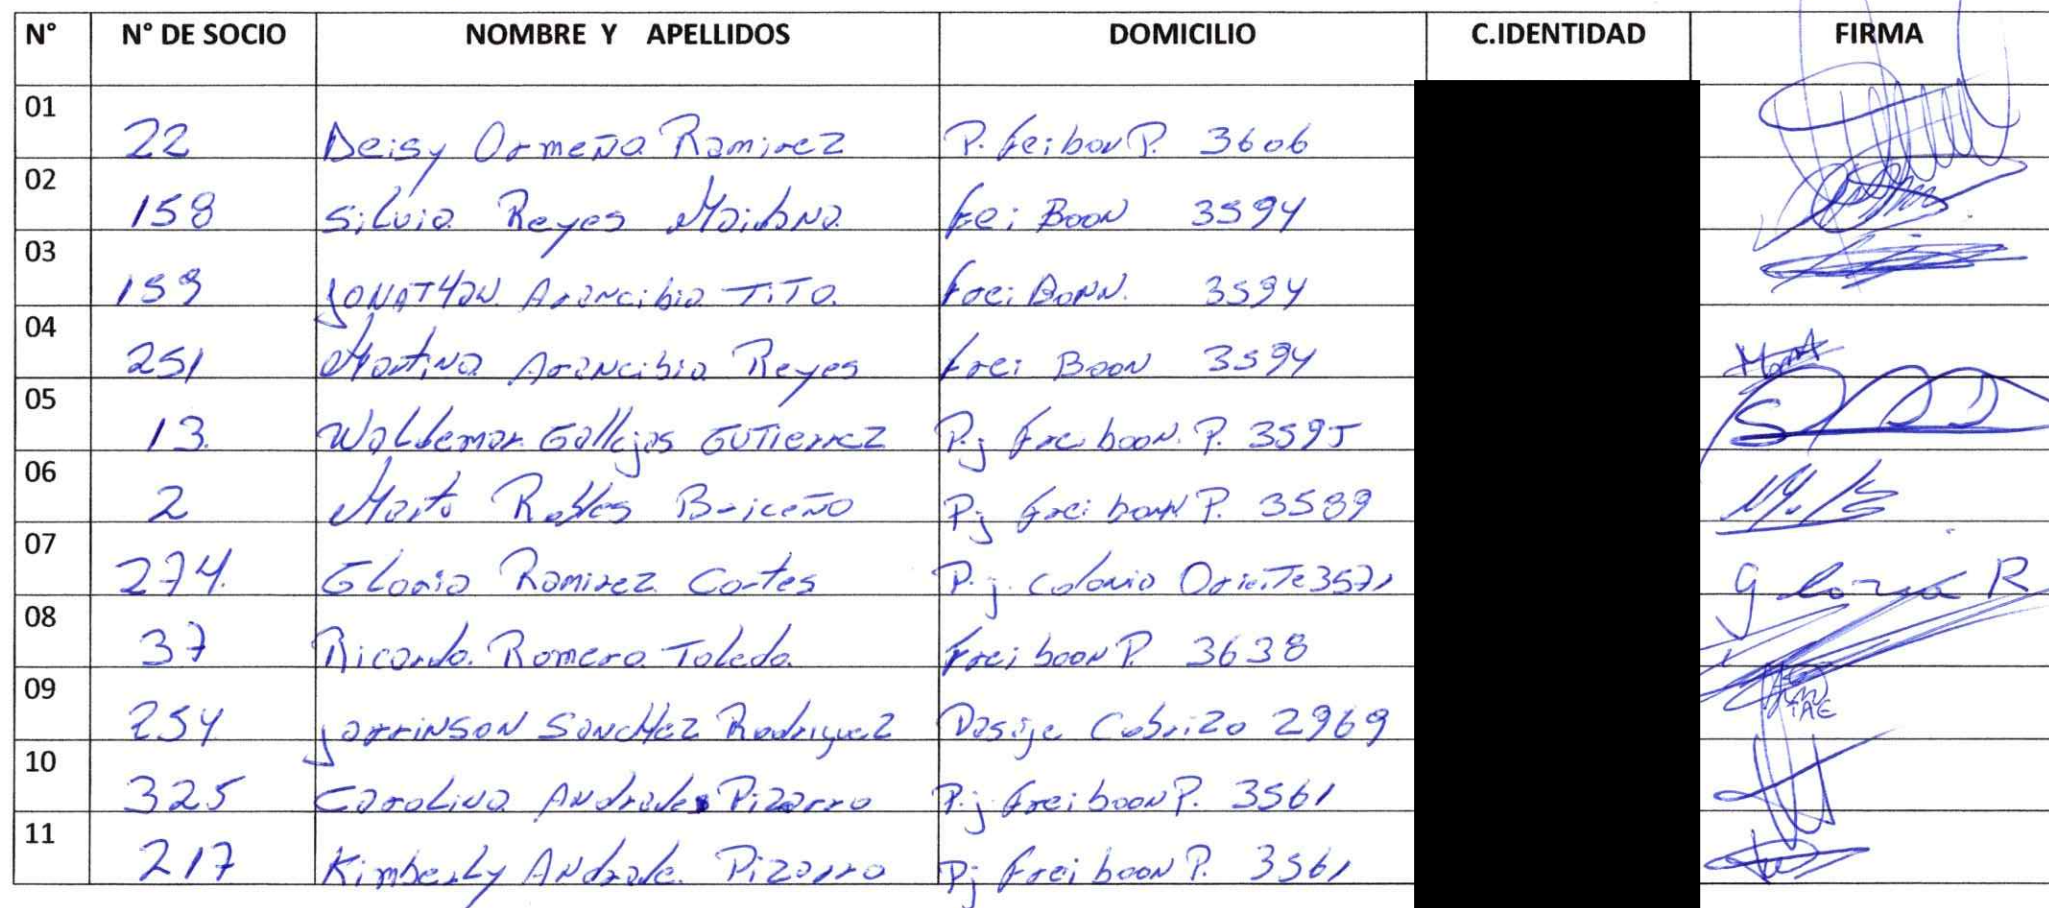 N° N° DE SOCIO NOMBRE Y APELLIDOS DOMICILIO C.IDENTIDAD FIRMA
01 22 Deisy Ormeño Ramirez P. freibon P. 3606
02 158 Silvia Reyes frei Boon 3594
03 159 JONATHAN Arancibia TITO. frei Bonn. 3594
04 251 Martina Arancibia Reyes frei Boon 3594
05 13. Waldemar Gallejos GUTIERREZ Pj frei boon. P. 3595
06 2 Marta Robles Briceño Pj frei bonn P. 3589
07 274. Gloria Ramirez Cortes P.j. colonia Oriente 3571 Gloria R
08 37 Ricardo Romero Toledo. frei boon P. 3638
09 254 jarrinson Sanchez Rodriguez Pasaje Cobrizo 2969
10 325 Carolina Andrades Pizarro P.j freiboon P. 3561
11 217 Kimberly Andrade Pizarro Pj frei boon P. 3561